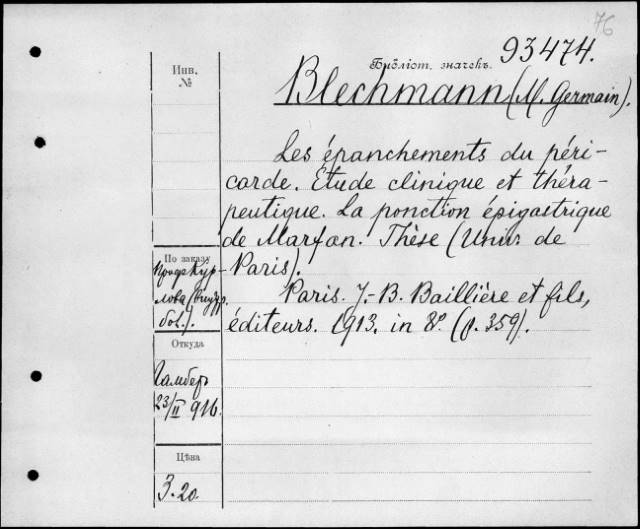 76
93474.
Библіот. значекъ.
Инв.
№
Blechmann (M. Germain).
Les épanchements du péri-
carde. Étude clinique et théra-
peutique. La ponction épigastrique
de Marfan. Thèse (Univ. de
Paris).
Paris. J.-B. Baillière et fils,
éditeurs. 1913. in 8º. (p. 359).
По заказу
Проф. Кур-
лова (внутр.
бол.).
Откуда
23/II 916.
Цѣна
3.20